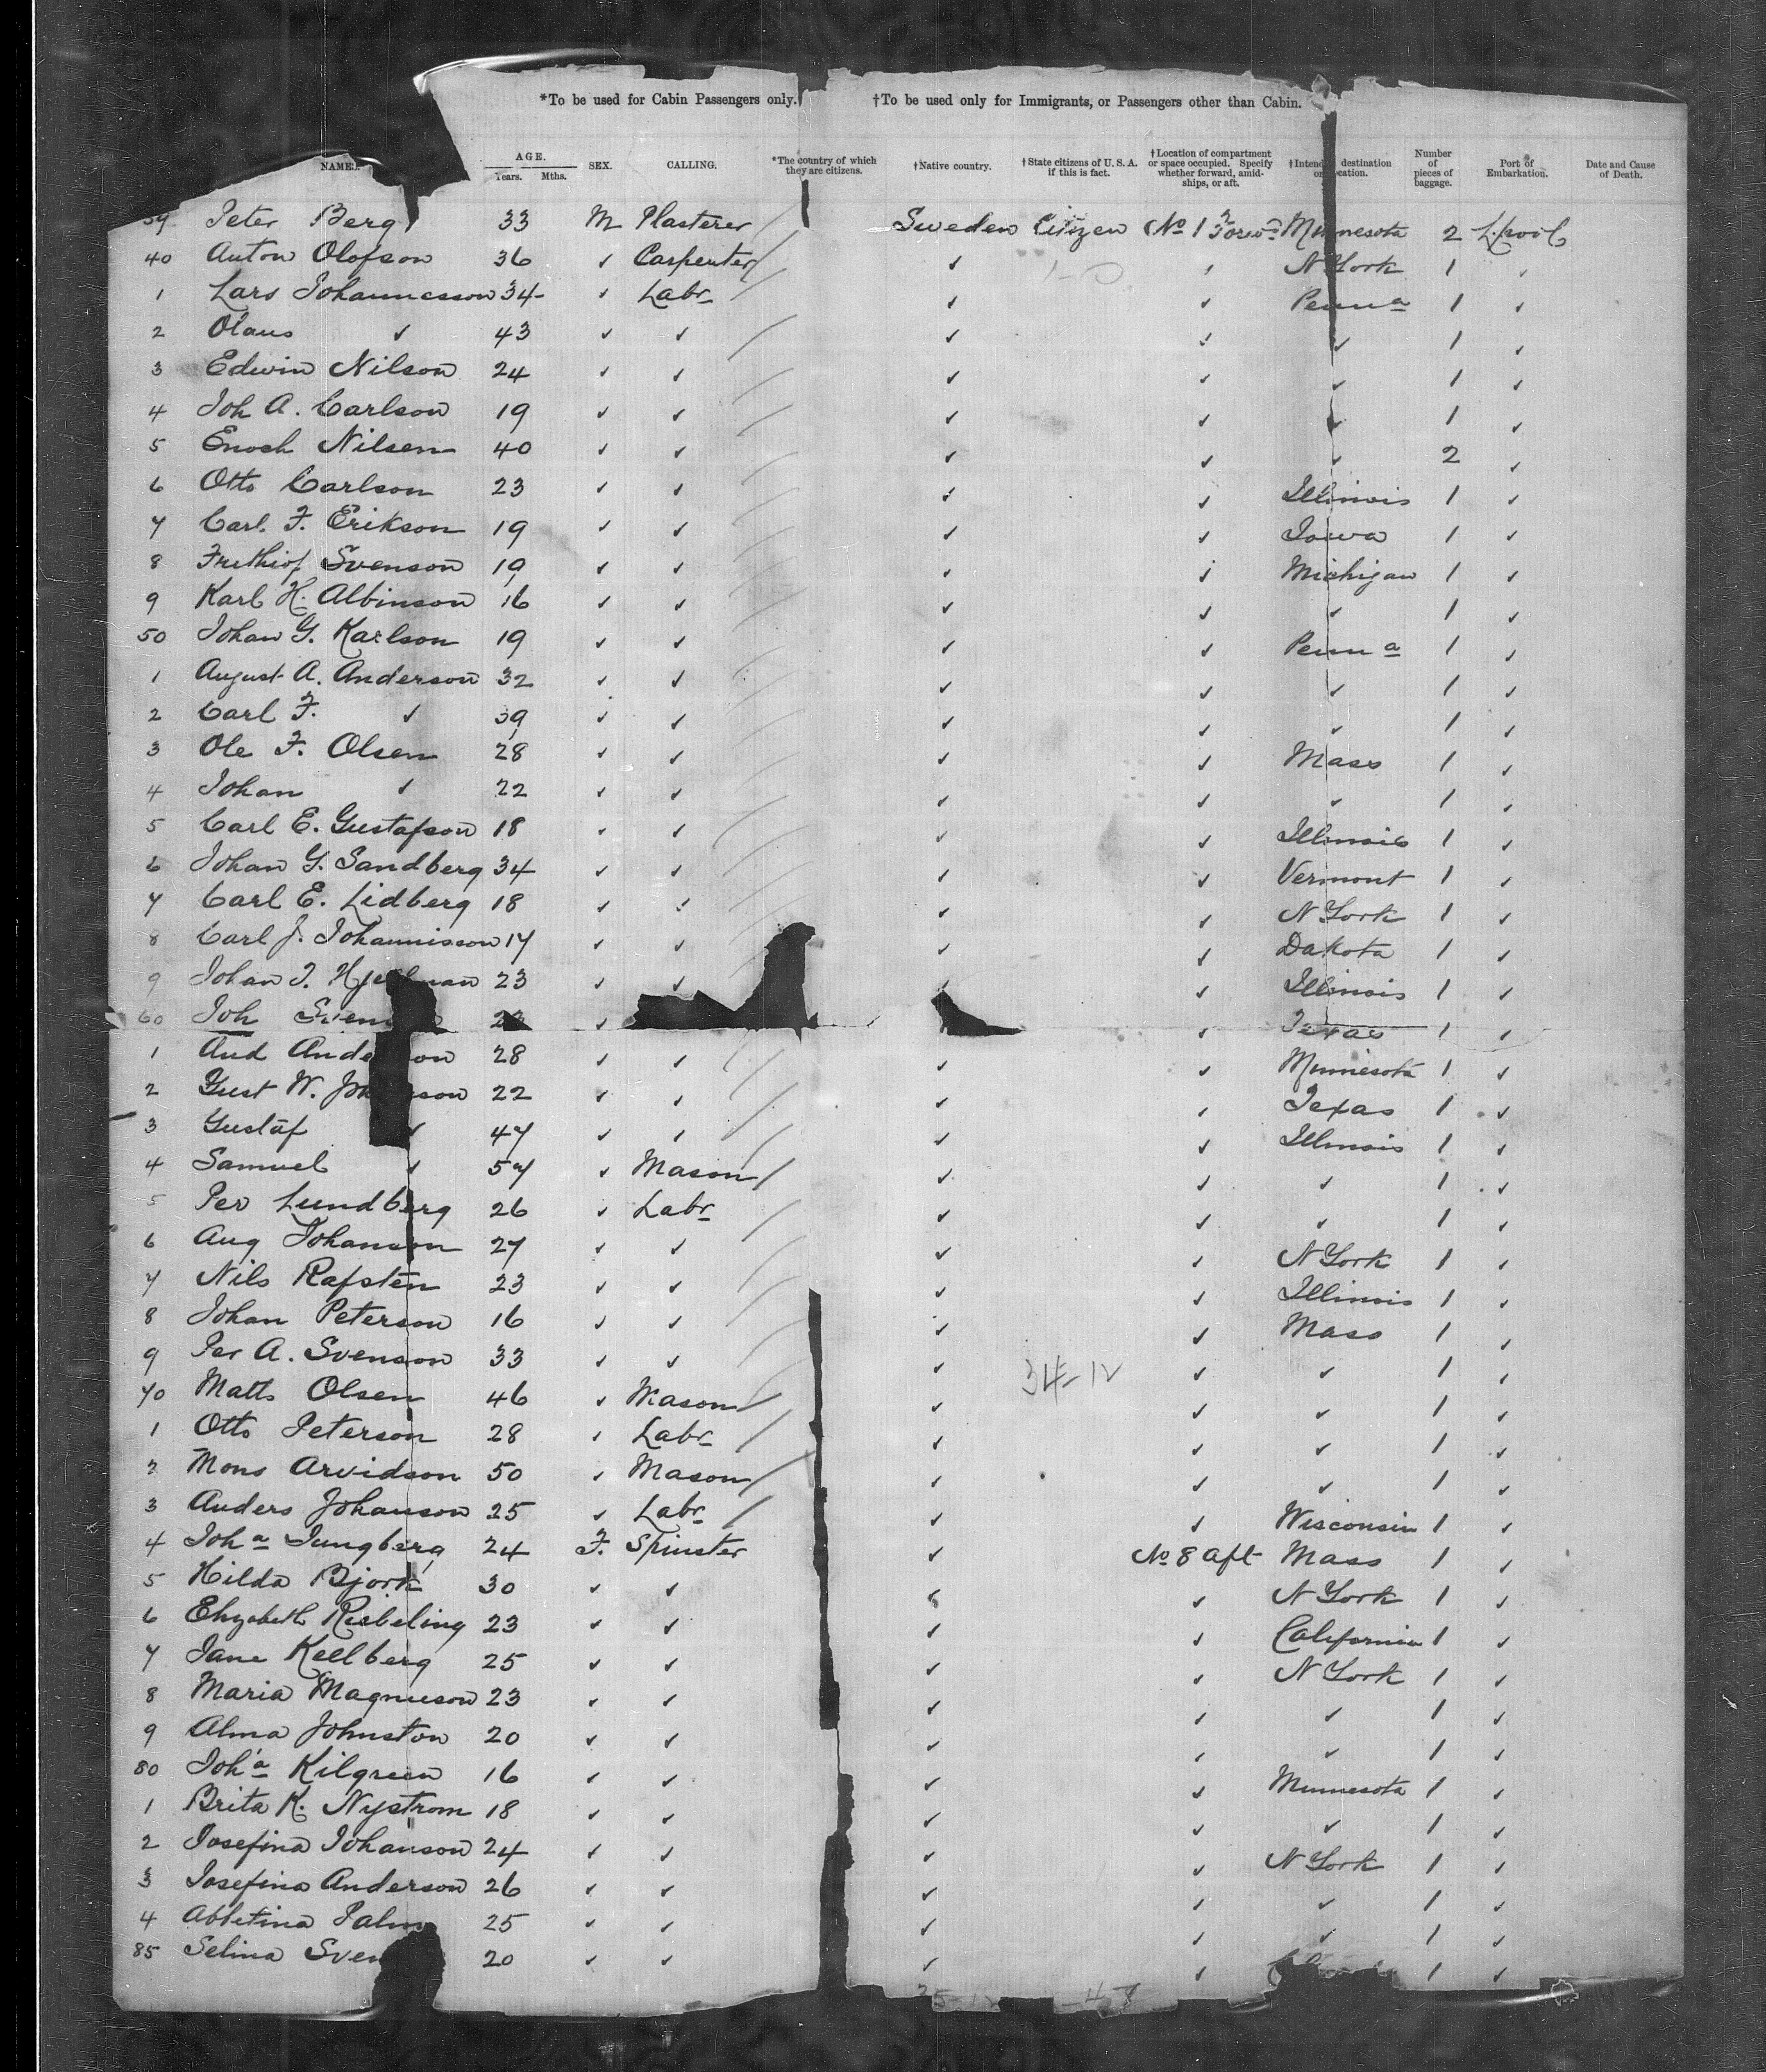 *To be used for Cabin Passengers only. †To be used only for Immigrants, or Passengers other than Cabin.
NAMES. AGE. Years. Mths. SEX. CALLING. *The country of which they are citizens. †Native country. †State citizens of U.S.A. if this is fact. †Location of compartment or space occupied. Specify whether forward, amidships, or aft. destination Number of pieces of baggage. Port of Embarkation. Date and Cause of Death.
39 Peter Berg 33 M Plasterer Sweden Citizen No 1 Minnesota 2 L.pool
40 Anton Olofson 36 ✓ Carpenter ✓ ✓ N York 1 ✓
1 Lars Johannesson 34 ✓ Labr ✓ ✓ Penna 1 ✓
2 Olaus ✓ 43 ✓ ✓ ✓ ✓ ✓ 1 ✓
3 Edwin Nilson 24 ✓ ✓ ✓ ✓ ✓ 1 ✓
4 Joh A. Carlson 19 ✓ ✓ ✓ ✓ ✓ 1 ✓
5 Enoch Nilsen 40 ✓ ✓ ✓ ✓ ✓ 2 ✓
6 Otto Carlson 23 ✓ ✓ ✓ ✓ Illinois 1 ✓
7 Carl. F. Erikson 19 ✓ ✓ ✓ ✓ Iowa 1 ✓
8 Frithiof Svenson 19 ✓ ✓ ✓ ✓ Michigan 1 ✓
9 Karl H. Albinson 16 ✓ ✓ ✓ ✓ ✓ 1 ✓
50 Johan G. Karlson 19 ✓ ✓ ✓ ✓ Penna 1 ✓
1 August A. Anderson 32 ✓ ✓ ✓ ✓ ✓ 1 ✓
2 Carl F. ✓ 39 ✓ ✓ ✓ ✓ ✓ 1 ✓
3 Ole F. Olsen 28 ✓ ✓ ✓ ✓ Mass 1 ✓
4 Johan ✓ 22 ✓ ✓ ✓ ✓ ✓ 1 ✓
5 Carl E. Gustafson 18 ✓ ✓ ✓ ✓ Illinois 1 ✓
6 Johan G. Sandberg 34 ✓ ✓ ✓ ✓ Vermont 1 ✓
7 Carl E. Lidberg 18 ✓ ✓ ✓ ✓ N York 1 ✓
8 Carl J. Johannisson 17 ✓ ✓ ✓ ✓ Dakota 1 ✓
9 Johan 23 ✓ ✓ ✓ ✓ Illinois 1 ✓
60 Joh ✓ ✓ Texas 1 ✓
1 And 28 ✓ ✓ ✓ ✓ Minnesota 1 ✓
2 Gust W. 22 ✓ ✓ ✓ ✓ Texas 1 ✓
3 Gustaf ✓ 47 ✓ ✓ ✓ ✓ Illinois 1 ✓
4 Samuel ✓ 57 ✓ Mason ✓ ✓ ✓ 1 ✓
5 Per Lundberg 26 ✓ Labr ✓ ✓ ✓ 1 ✓
6 Aug Johanson 27 ✓ ✓ ✓ ✓ N York 1 ✓
7 Nils Rafsten 23 ✓ ✓ ✓ ✓ Illinois 1 ✓
8 Johan Peterson 16 ✓ ✓ ✓ ✓ Mass 1 ✓
9 Per A. Svenson 33 ✓ ✓ ✓ 34-12 ✓ ✓ 1 ✓
70 Matts Olsen 46 ✓ Mason ✓ ✓ ✓ 1 ✓
1 Otto Peterson 28 ✓ Labr ✓ ✓ ✓ 1 ✓
2 Mons Arvidson 50 ✓ Mason ✓ ✓ ✓ 1 ✓
3 Anders Johanson 25 ✓ Labr ✓ ✓ Wisconsin 1 ✓
4 Joha Jungberg 24 F. Spinster ✓ No 8 aft Mass 1 ✓
5 Hilda Bjork 30 ✓ ✓ ✓ ✓ N York 1 ✓
6 Elizabeth Riebeling 23 ✓ ✓ ✓ ✓ California 1 ✓
7 Jane Kellberg 25 ✓ ✓ ✓ ✓ N York 1 ✓
8 Maria Magnuson 23 ✓ ✓ ✓ ✓ ✓ 1 ✓
9 Alma Johnston 20 ✓ ✓ ✓ ✓ ✓ 1 ✓
80 Joha Kilgreen 16 ✓ ✓ ✓ ✓ Minnesota 1 ✓
1 Brita K. Nystrom 18 ✓ ✓ ✓ ✓ ✓ 1 ✓
2 Josefina Johanson 24 ✓ ✓ ✓ ✓ N York 1 ✓
3 Josefina Anderson 26 ✓ ✓ ✓ ✓ ✓ 1 ✓
4 Albetina Palm 25 ✓ ✓ ✓ ✓ ✓ 1 ✓
85 Selina 20 ✓ ✓ ✓ ✓ 1 ✓